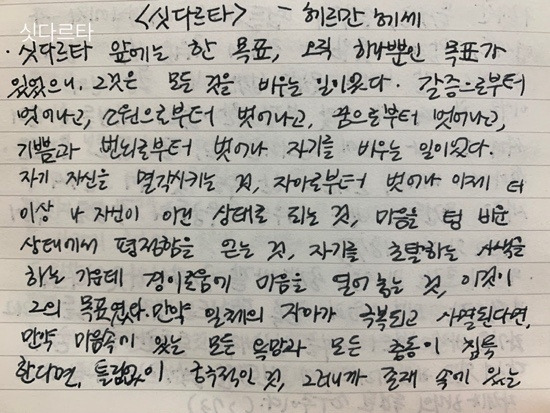 싯다르타
<싯다르타> - 헤르만 헤세
· 싯다르타 앞에는 한 목표, 오직 하나뿐인 목표가
있었으니, 그것은 모든 것을 비우는 일이었다. 갈증으로부터
벗어나고, 소원으로부터 벗어나고, 꿈으로부터 벗어나고,
기쁨과 번뇌로부터 벗어나 자기를 비우는 일이었다.
자기 자신을 멸각시키는 것, 자아로부터 벗어나 이제 더
이상 나 자신이 아닌 상태로 되는 것, 마음을 텅 비운
상태에서 평정함을 얻는 것, 자기를 초탈하는 사색을
하는 가운데 경이로움에 마음을 열어 놓는 것, 이것이
그의 목표였다. 만약 일체의 자아가 극복되고 사멸된다면,
만약 마음속에 있는 모든 욕망과 모든 충동이 침묵
한다면, 틀림없이 궁극적인 것, 그러니까 존재 속에 있는